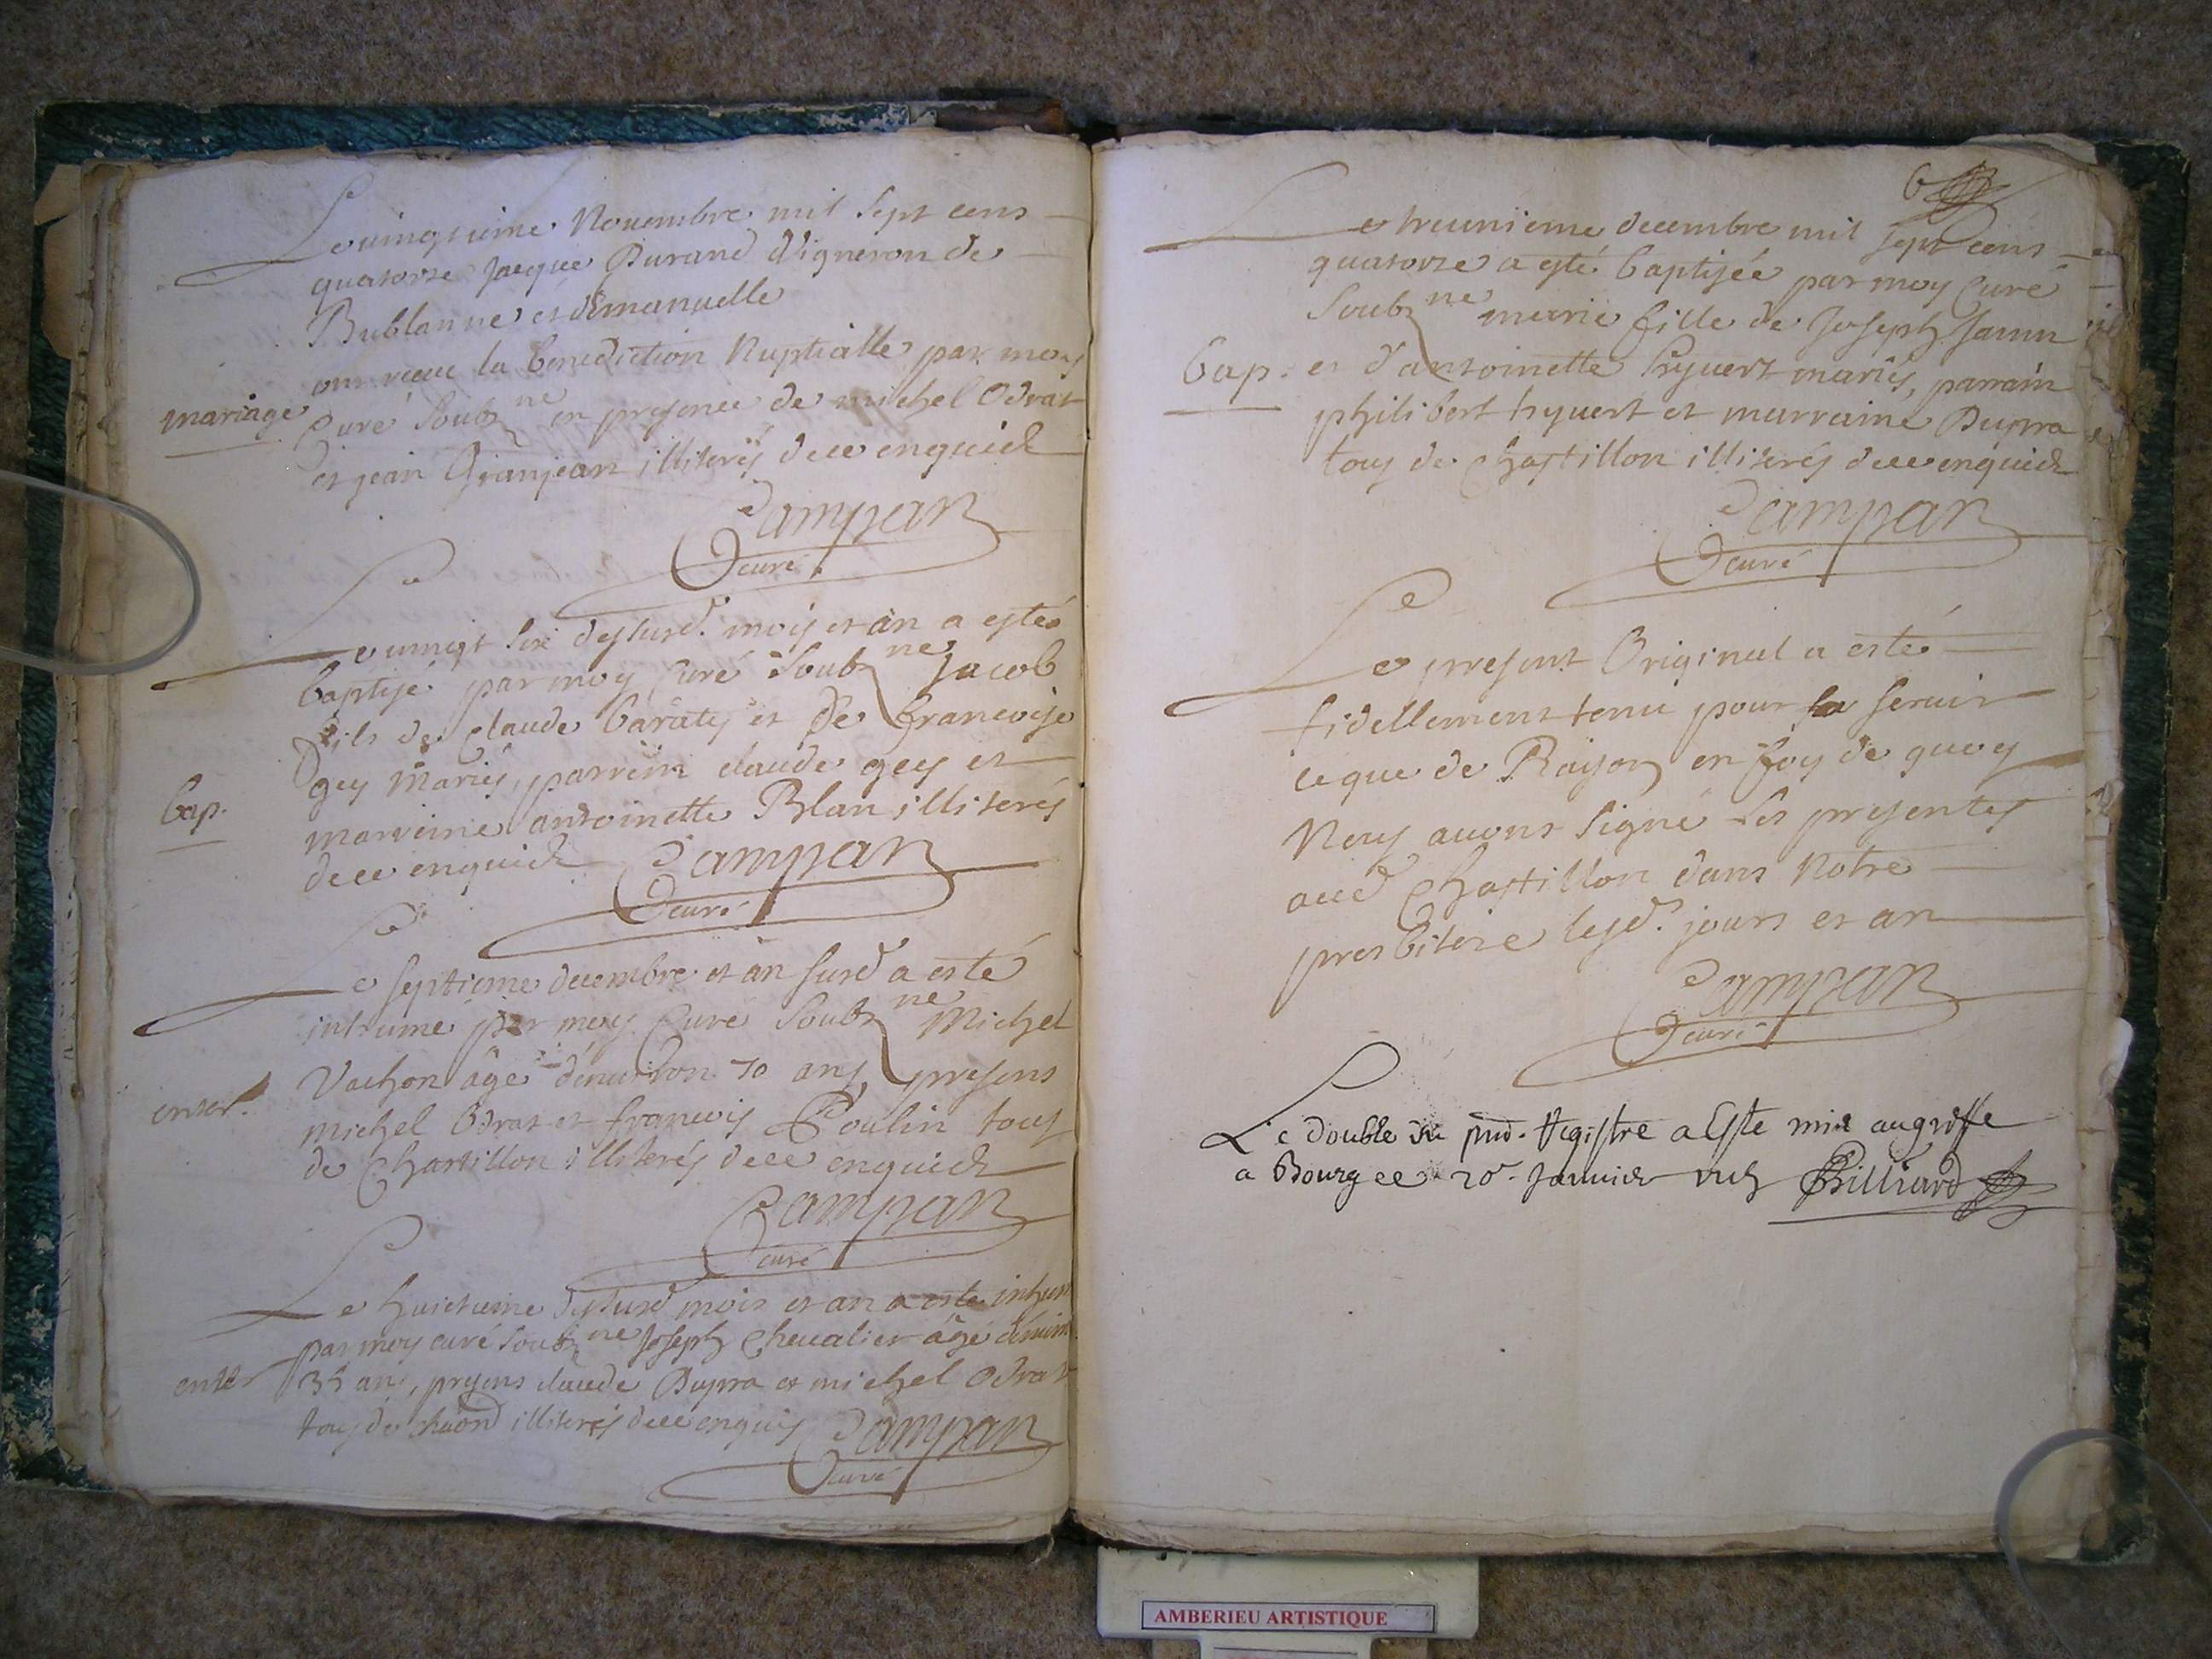 Le vingtieme Nouembre mil sept cens
quatorze Jacque Durand Vigneron de
Bublanne et Emanuelle
ont receu la benediction Nuptialle par moy
mariage
Curé Soubz ne en presence de michel Odrat
et jean Granjean illiterés dece enquich
Campan
curé
Le vingt sixe desd. mois et an a esté
baptisé par moy Curé Soubz ne Jacob
fils de claude baraty et de francoise
gey Mariés, parrein claude gey et
Bap.
marreine antoinette Blan illiterés
dece enquich Campan
curé
Le septieme decembre et an susd a esté
inhumé par moy Curé Soubz ne Michel
Vachon âgé denuiron 70 ans, presens
enter.
michel Odrat et francois Poulin tous
de Chastillon illiterés dece enquich
Campan
curé
Le huictieme susd mois et an a esté inhum
par moy curé soubz ne Joseph Cheualier âgé denuir
enter
35 ans, presens claude Dupra et michel Odrat
tous de illiterés dece enquis Campan
curé
6
Le treunieme decembre mil sept cens
quatorze a esté baptisée par moy Curé
Soubz ne marie fille de Joseph
Bap. et d'antoinette hyuert mariés, parrain
philibert hyuert et marraine Dupra
tous de Chastillon illiterés dece enquich
Campan
curé
Le present Original a esté
fidellement tenu pour seruir
ce que de Raison en foy de quoy
Nous auons signé les presentes
aud Chastillon dans Notre
presbitere lesd. jours et an
Campan
curé
Le double du pnt. Registre a Este mis au greffe
a Bourg ce 20e Januier Billiard
AMBERIEU ARTISTIQUE